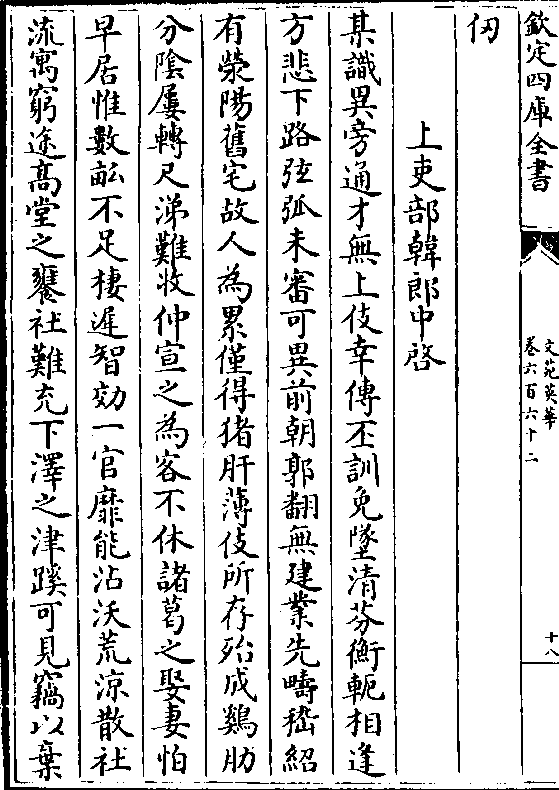 欽定四庫全書
文苑英華
卷六百六十二
十八
仞
上吏部韓郎中啓
某識異旁通才無上伎幸傳丕訓免墜清芬衡軛相逢
方悲下路弦弧未審可異前朝郭翻無建業先疇嵇紹
有滎陽舊宅故人為累僅得猪肝薄伎所存殆成鷄肋
分陰屢轉尺涕難收仲宣之為客不休諸葛之娶妻怕
早居惟數畝不足棲遲智効一官靡能沾沃荒涼散社
流寓窮途高堂之饔社難充下澤之津蹊可見竊以棄